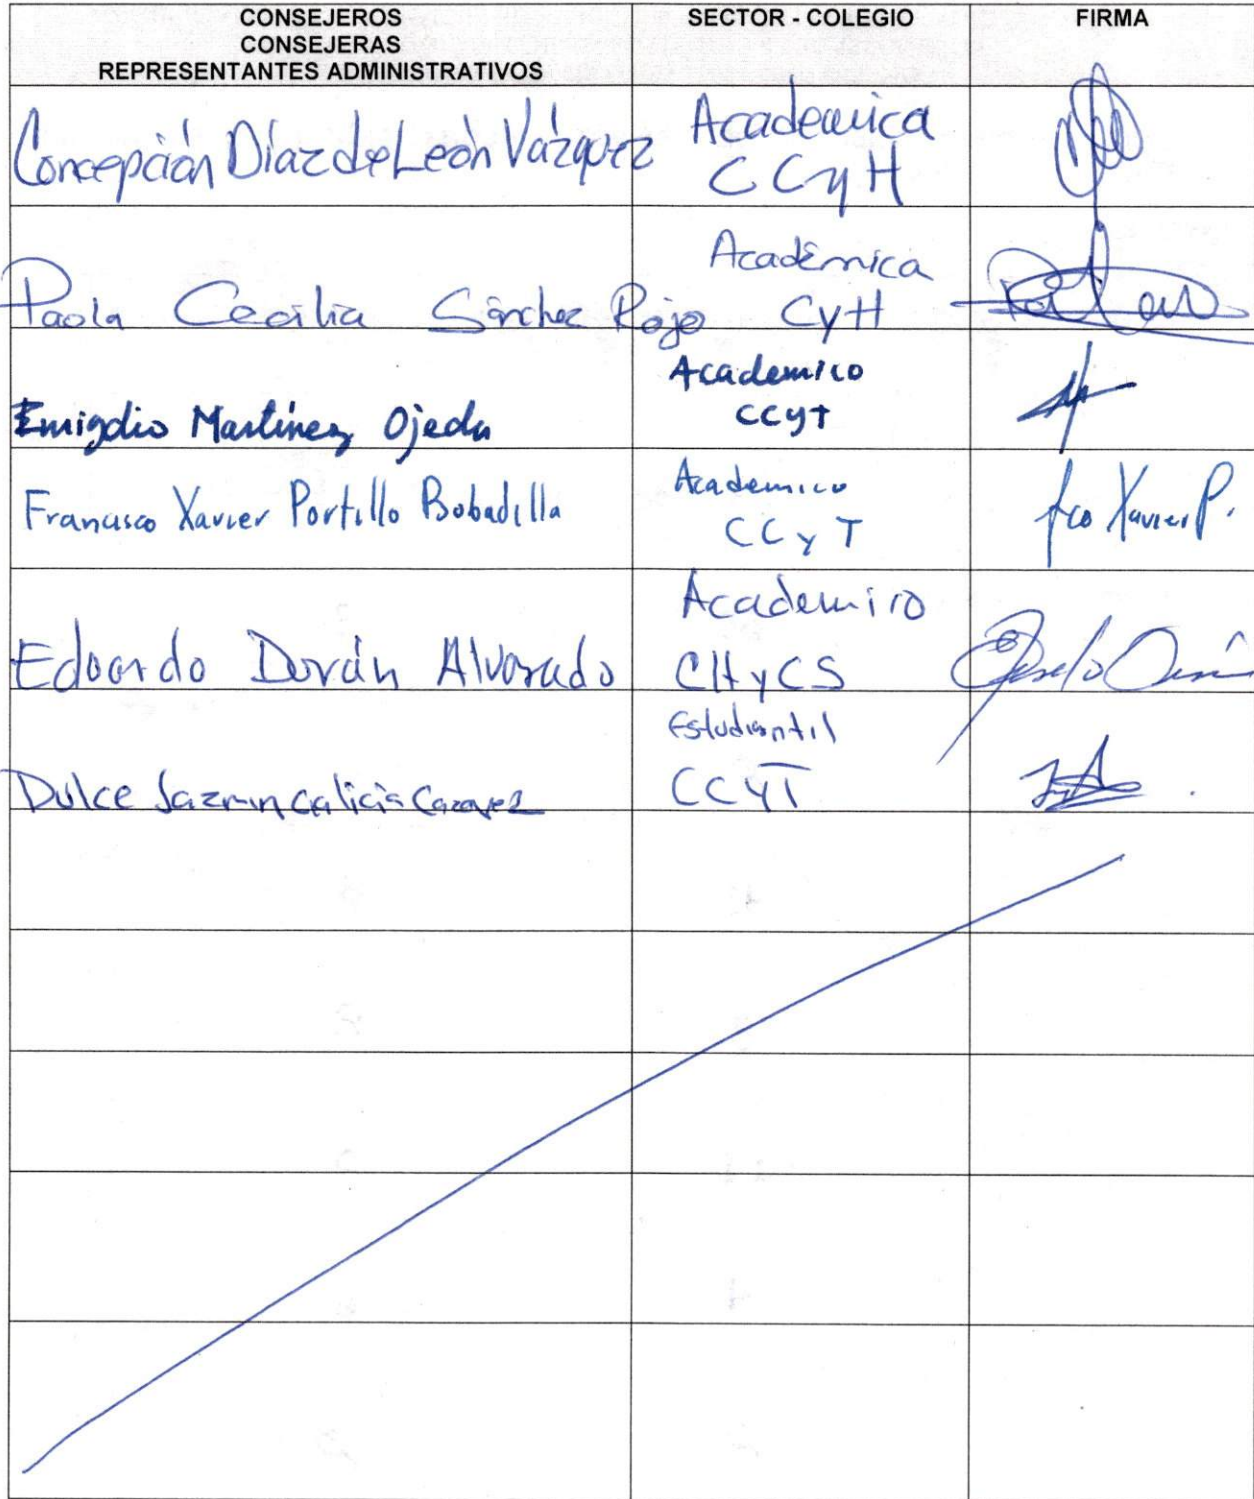 CONSEJEROS
CONSEJERAS
REPRESENTANTES ADMINISTRATIVOS
SECTOR - COLEGIO
FIRMA
Concepción Díaz de León Vázquez
Academica
CCyH
Paola Cecilia Sánchez Rojo
Académica
CyH
Emigdio Martínez Ojeda
Academico
CCyT
Francisco Xavier Portillo Bobadilla
Academico
CCyT
fco Xavier P.
Edoardo Durán Alvarado
Academico
CHyCS
Dulce Jazmin Galicia
Estudiantil
CCYT